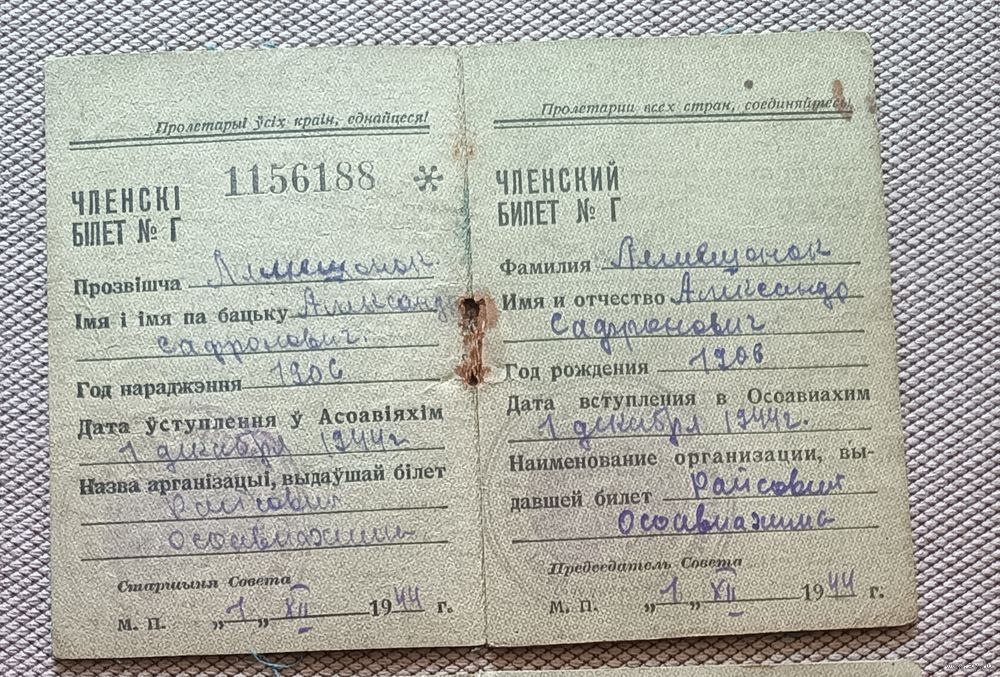 Пролетары ўсіх краін, еднайцеся!
ЧЛЕНСКІ
1156188 *
БІЛЕТ № Г
Прозвішча Лемешонок
Імя і імя па бацьку Александр
Сафронович
Год нараджэння 1906
Дата ўступлення ў Асоавіяхім
1 декабря 1944 г
Назва арганізацыі, выдаўшай білет
Райсовет
Осоавиахима
Старшыня Совета
М. П. „1„ XII 1944 г.
Пролетарии всех стран, соединяйтесь!
ЧЛЕНСКИЙ
БИЛЕТ № Г
Фамилия Лемешонок
Имя и отчество Александр
Сафронович
Год рождения 1906
Дата вступления в Осоавиахим
1 декабря 1944 г.
Наименование организации, вы-
давшей билет Райсовет
Осоавиахима
Председатель Совета
М. П. „1„ XII 1944 г.